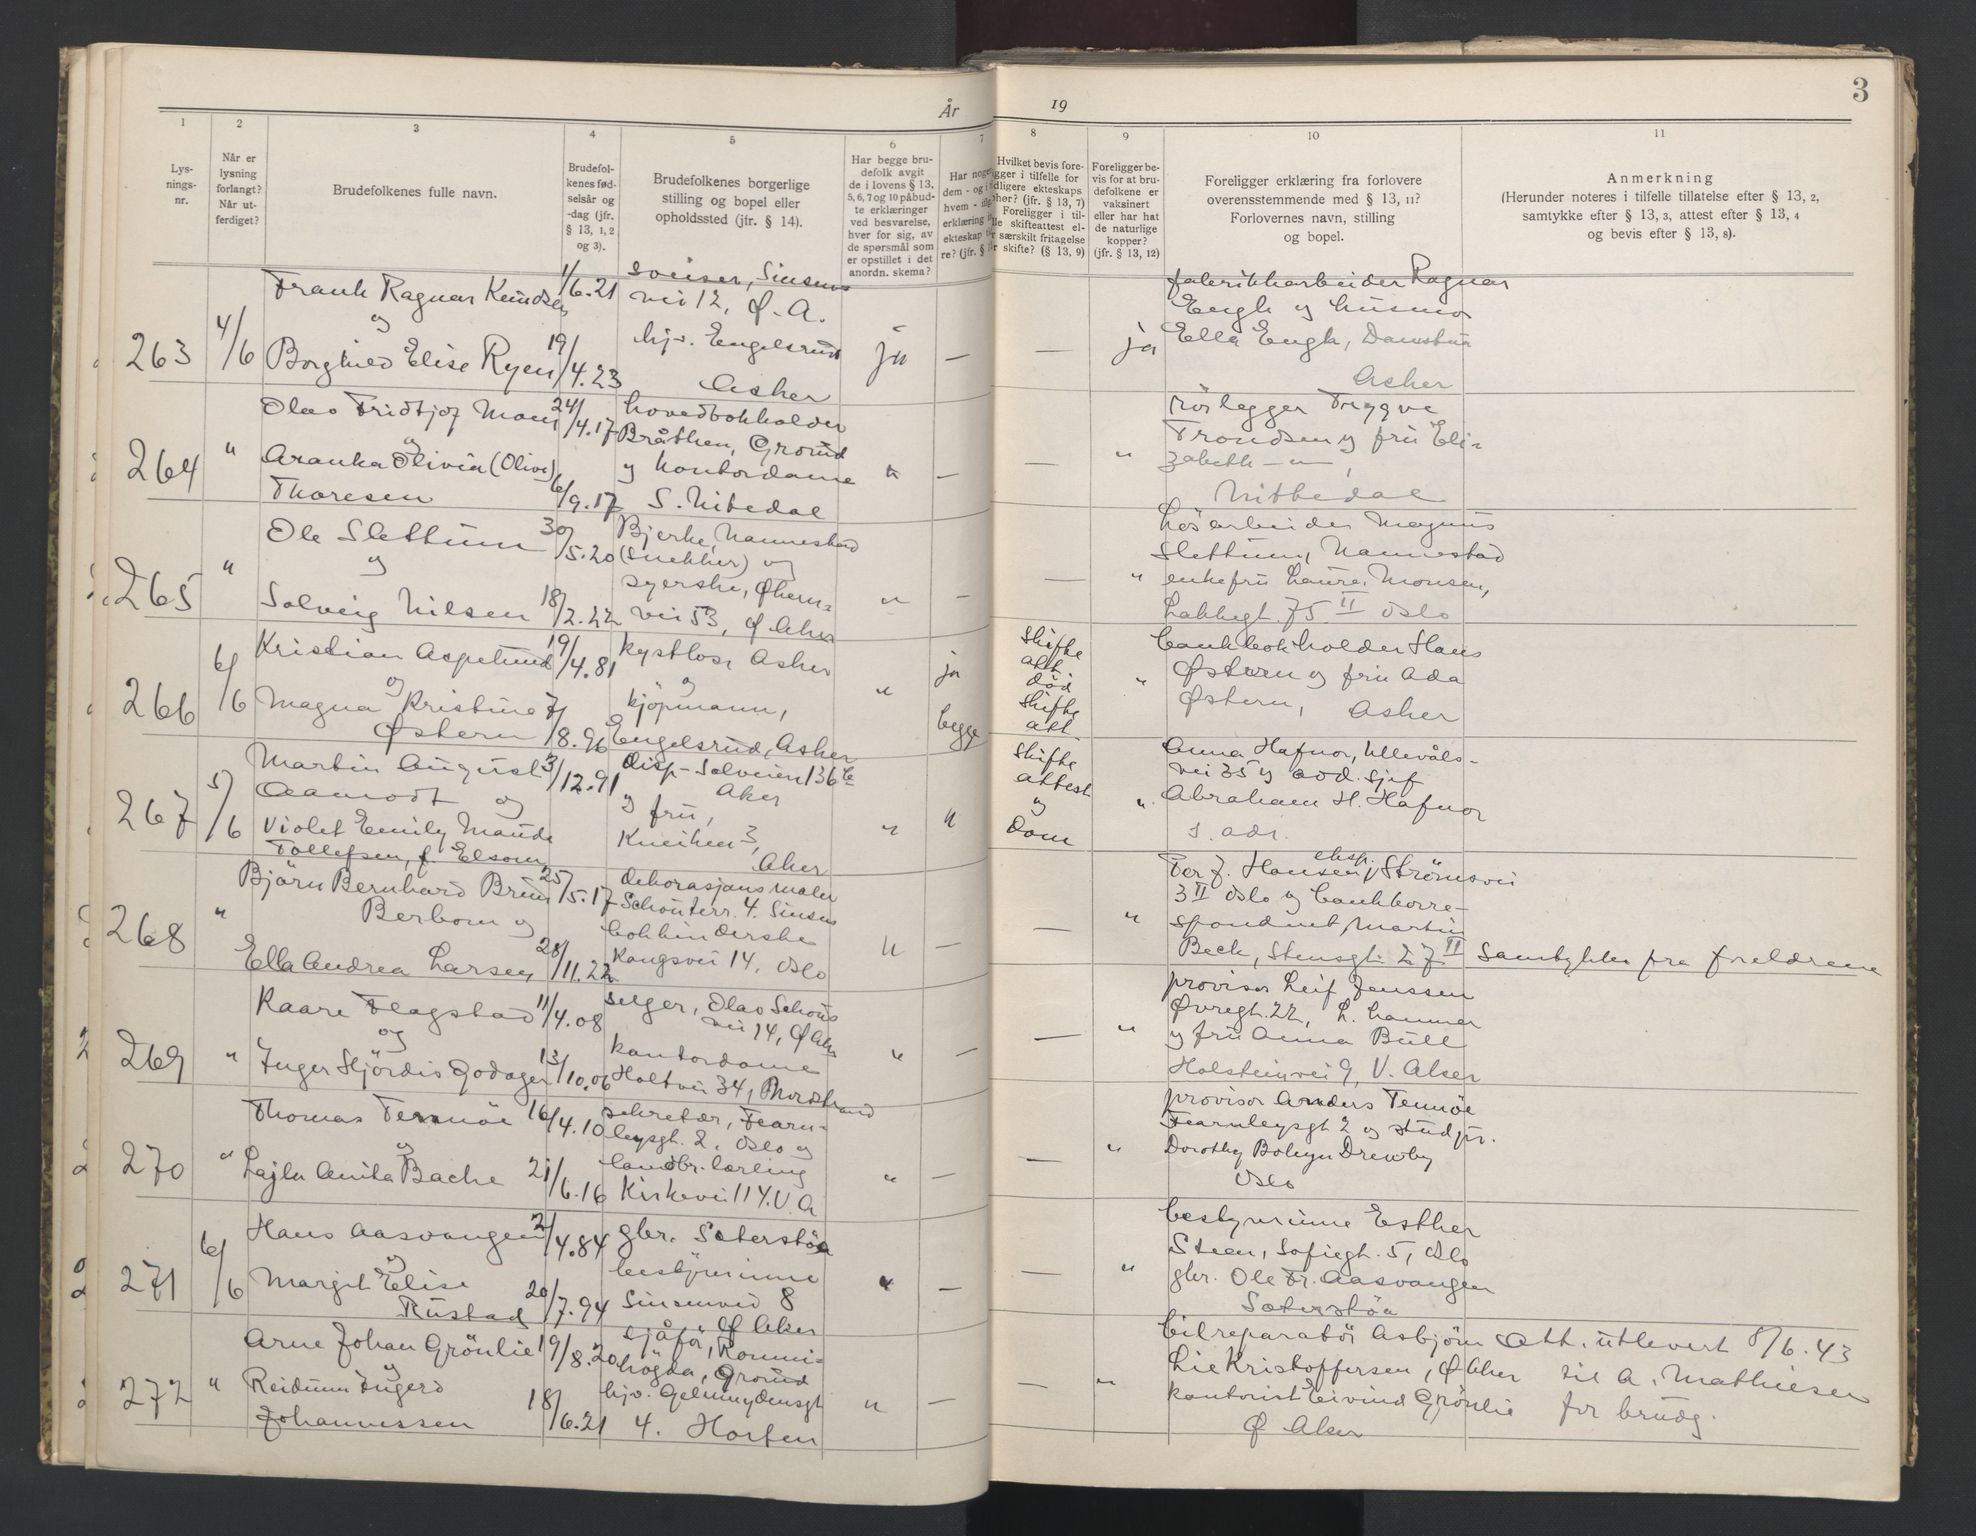 År
19
3
1
2
3
4
5
6
7
8
9
10
11
Lys-
nings-
nr.
Når er
lysning
forlangt?
Når ut-
ferdiget?
Brudefolkenes fulle navn.
Brudefol-
kenes fød-
selsår og
-dag (jfr.
§ 13, 1, 2
og 3).
Brudefolkenes borgerlige
stilling og bopel eller
opholdssted (jfr. § 14).
Har begge bru-
defolk avgit
de i lovens § 13,
5, 6, 7 og 10 påbud-
te erklæringer
ved besvarelse,
hver for sig, av
de spørsmål som
er opstillet i det
anordn. skema?
Har nogen
dem - og i
hvem -
erklæring
ekteskap
re? (jfr. §
Hvilket bevis fore-
ligger i tilfelle for
tidligere ekteskaps
ophør? (jfr. § 13, 7)
Foreligger i til-
felle skifteattest el-
ler særskilt fritagelse
for skifte? (§ 13, 9)
Foreligger be-
vis for at bru-
defolkene er
vaksinert
eller har hat
de naturlige
kopper?
(jfr. § 13, 12)
Foreligger erklæring fra forlovere
overensstemmende med § 13, 11?
Forlovernes navn, stilling
og bopel.
Anmerkning
(Herunder noteres i tilfelle tillatelse efter § 13, 2,
samtykke efter § 13, 3, attest efter § 13, 4
og bevis efter § 13, 8).
263
4/6
Frank Ragnar Knudsen
og
Borghild Elise Ryen
1/6.21
19/4.23
sveiser, Sinsens
vei 12, Ø. A.
hjv. Engelsrud
Asker
ja
—
—
ja
fabrikkarbeider Ragnar
Engh og husmor
Ella Engh,
Asker
264
"
Olav Fridtjof Moen
og
Aranka Olivia (Olive)
Thoresen
24/4.17
6/9.17
hovedbokholder
Bråthen, Grorud
og kontordame
S. Nitedal
"
—
—
"
rørlegger Trygve
Trondsen og fru Eli-
zabeth —"—,
Nittedal
265
"
Ole Slettum
og
Solveig Nilsen
30/5.20
18/2.22
Bjerke, Nannestad
(snekker) og
syerske, Økern-
vei 53, Ø Aker
"
—
—
"
løsarbeider Magnus
Slettum, Nannestad
enkefru Laura Monsen,
Lakkegt. 75 II Oslo
266
6/6
Kristian Aspelund
og
Magna Kristine
Østern
19/4.81
7/8.96
kystlos, Asker
og
kjøpmann,
Engelsrud, Asker
"
ja
begge
Skifte
att
død
Skifte
att.
"
bankbokholder Hans
Østern og fru Ada
Østern, Asker
267
5/6
Martin August
Aamodt og
Violet Emily Maude
Tollefsen, f. Elsom
3/12.91
disp. Solveien 136 b
Aker
og fru,
Kneiken 3,
Aker
"
"
Skifte
attest
og
Dom
"
Anna Hafnor, Ullevåls-
vei 35 og avd. sjef
Abraham H. Hafnor
s. adr.
268
"
Bjørn Bernhard Brun
Berbom og
Ella Andrea Larsen
25/5.17
28/11.22
dekorasjonsmaler
Schouterr. 4. Sinsen
bokbinderske
Kongsvei 14, Oslo
"
—
—
"
Per J. Hansen, eksp. Strømsvei
3 II Oslo og bankkorre-
spondent Martin
Beck, Stensgt. 27 II
Samtykke fra foreldrene
269
"
Kaare Flagstad
og
Inger Hjördis Godager
11/4.08
13/10.06
selger, Olav Schous
vei 14, Ø Aker
kontordame
Holtvei 34, Nordstrand
"
—
—
"
provisor Leif Janssen
Øvregt. 22, L. hammer
og fru Anna Bull
Holsteinvei 9, V. Aker
270
"
Thomas Tennøe
og
Lajla Anita Bache
16/4.10
21/6.16
sekretær, Fearn-
leysgt. 2, Oslo og
landbr. lærling
Kirkevei 114. V. A
"
—
—
"
provisor Anders Tennøe
Fearnleysgt 2 og stud jur.
Dorothy Bolwyn Drewby
Oslo
271
6/6
Hans Aasvangen
og
Margit Elise
Rustad
2/4.84
20/7.94
gbr. Soterstøa
bestyrerinne
Sinsenvei 8
Ø Aker
"
—
—
"
bestyrerinne Esther
Steen, Sofiegt. 5, Oslo
gbr. Ole Fr. Aasvangen
Soterstøa
272
"
Arne Johan Grönlie
og
Reidunn Ingerd
Johannessen
19/8.20
18/6.21
sjåför, Rommi-
högda, Grorud
hjv. Gelmuydensgt
4. Horten
"
—
—
"
bilreparatör Asbjørn
Lie Kristoffersen, Ø Aker
kontorist Eivind Grönlie
Ø Aker
Att. utlevert 8/6.43
til A. Mathiesen
for brudg.